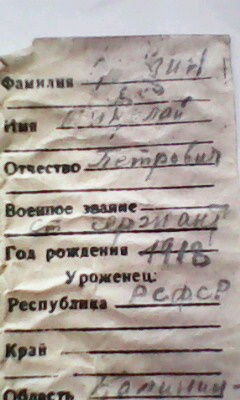 Фамилия
Имя Николай
Отчество Петрович
Военное звание
ст сержант
Год рождения 1918
Уроженец:
Республика РСФСР
Край
Область Калинин-